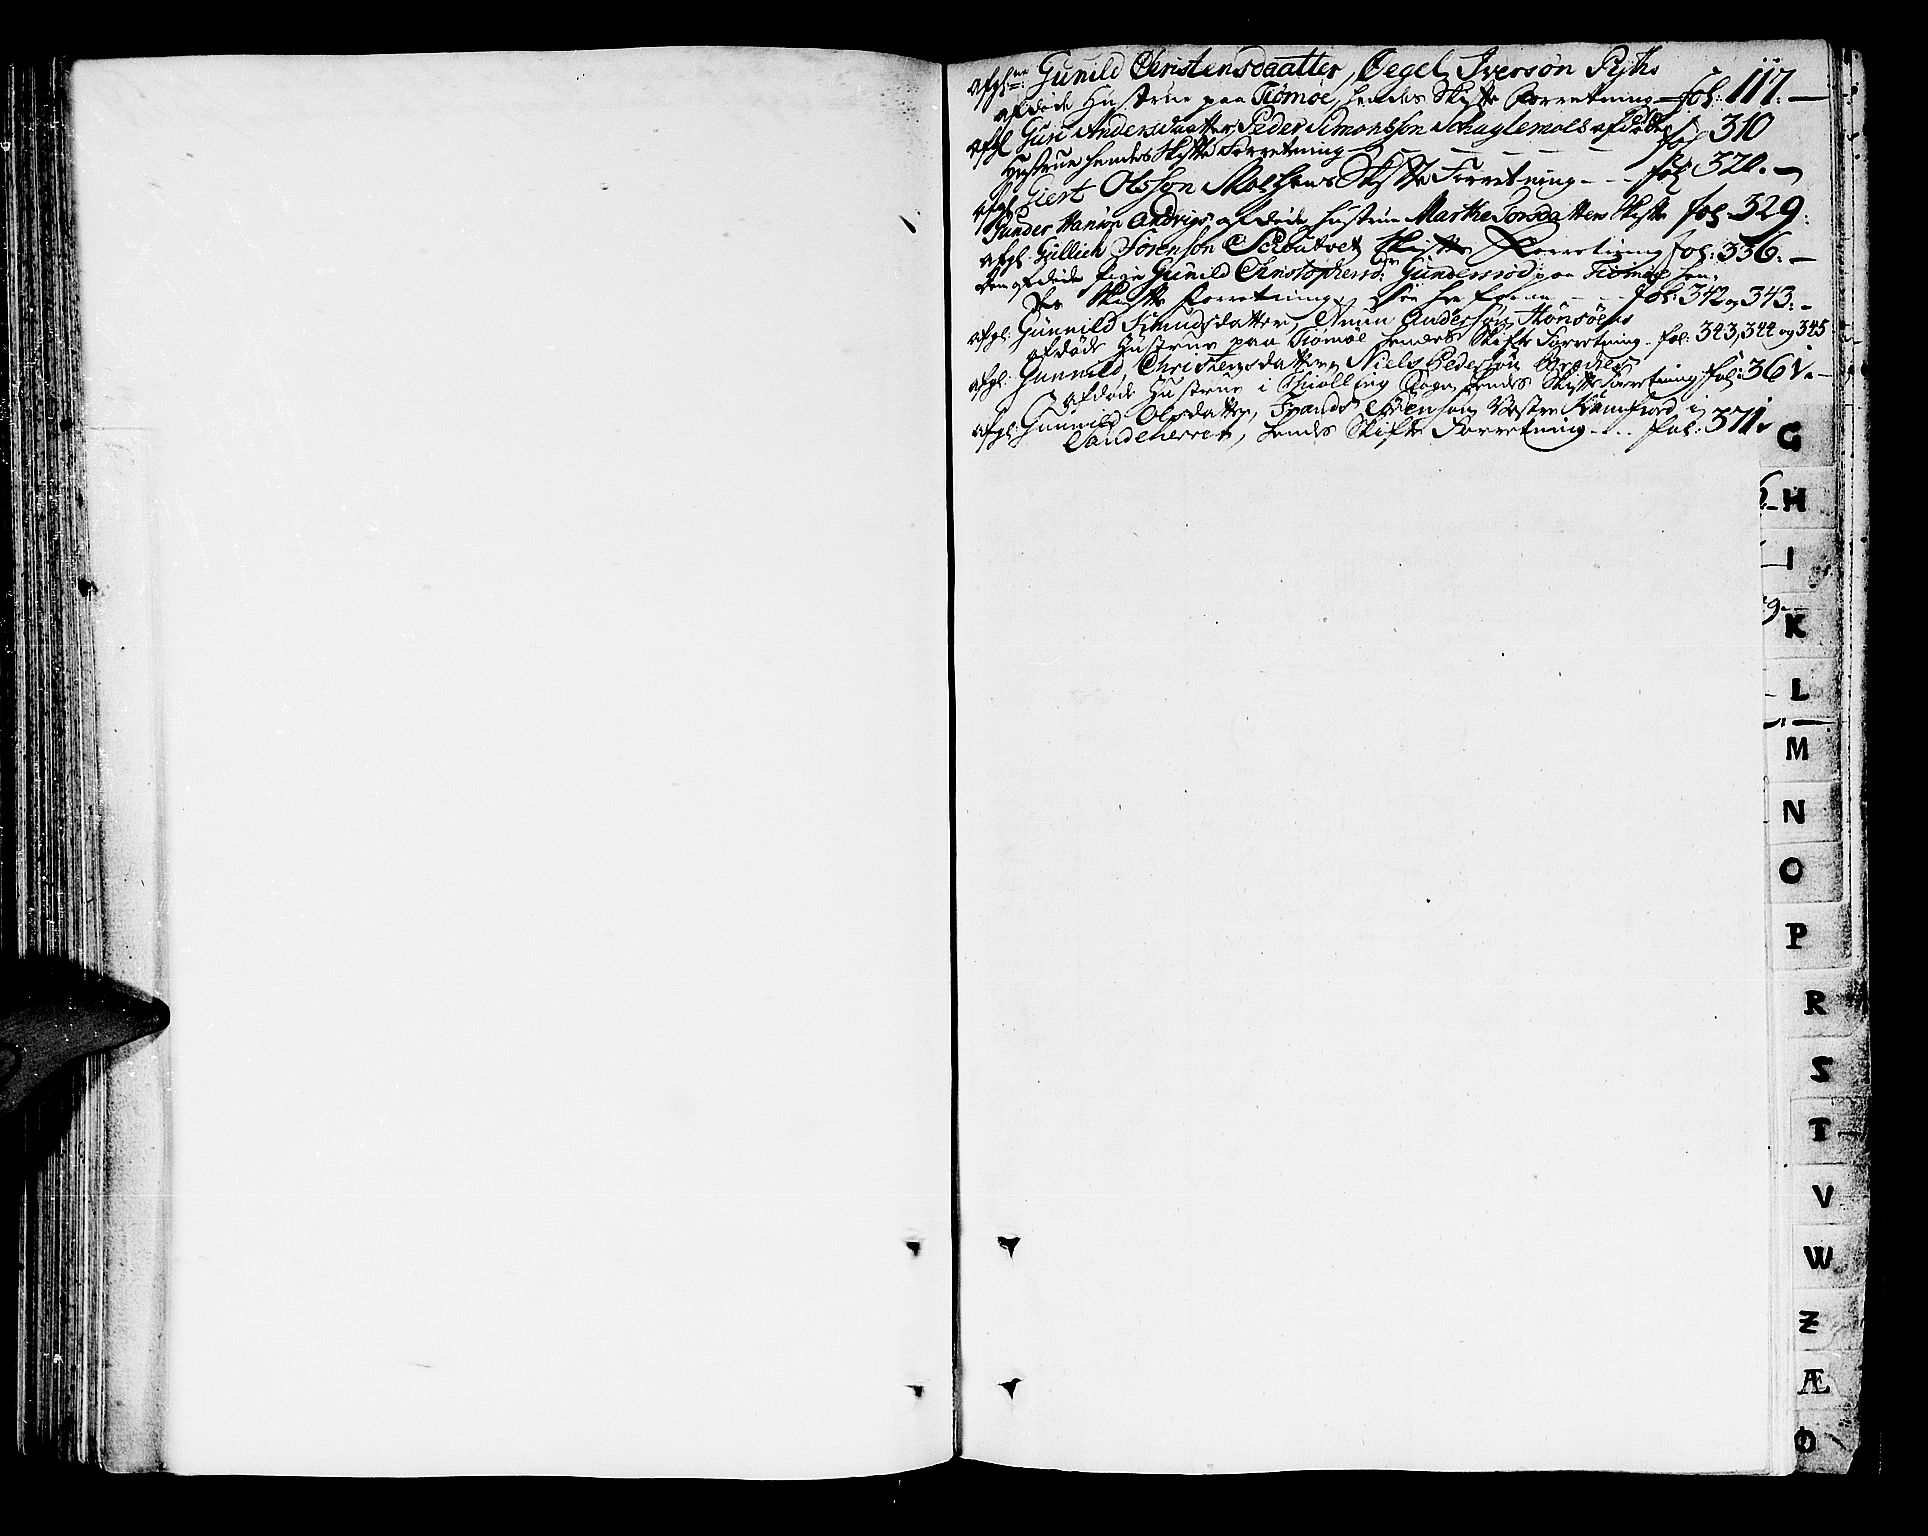 afgl:ne Gunild Christensdaatter, Øegel Iversøn Rijths
afdøde Hustrue paa Tiømøe, hendes Skifte Forretning fol: 117.
afgl Guri Andersdaatter Peder Simonsøn Schaglemoes afdøde
Hustrue hendes Skifte Forretning - - - - fol 310
afgl Giert Olssøn Skoesens Skifte Forretning - - - fol 320.
Gunder Hansøn afdøde hustrue Marthe Torsdatters Skifte fol 329.
afgl Güllich Sörensøn Skifte Forretning fol: 336.
Den afdøde Pige Gunild Christophersd: Gunderrød paa Tiømøe hen-
des Skifte Forretning - - - fol: 342 og 343.
afgl: Gunnild Simensdatter, Amun Andersøn Hønsøens
afdøde Hustrue paa Tiømøe hendes Skifte Forretning. fol: 343, 344 og 345
afgl: Gunnild Christensdatter Niels Pedersøn
afdøde Hustrue i Schiolling Sogn hendes Skifte Forretning fol: 361.
afgl: Gunnild Olsdatter, Frands Vestre i
Sandeherret, hendes Skifte Forretning - - - fol: 371.
G
H
I
K
L
M
N
O
P
R
S
T
V
W
Z
Æ
Ø